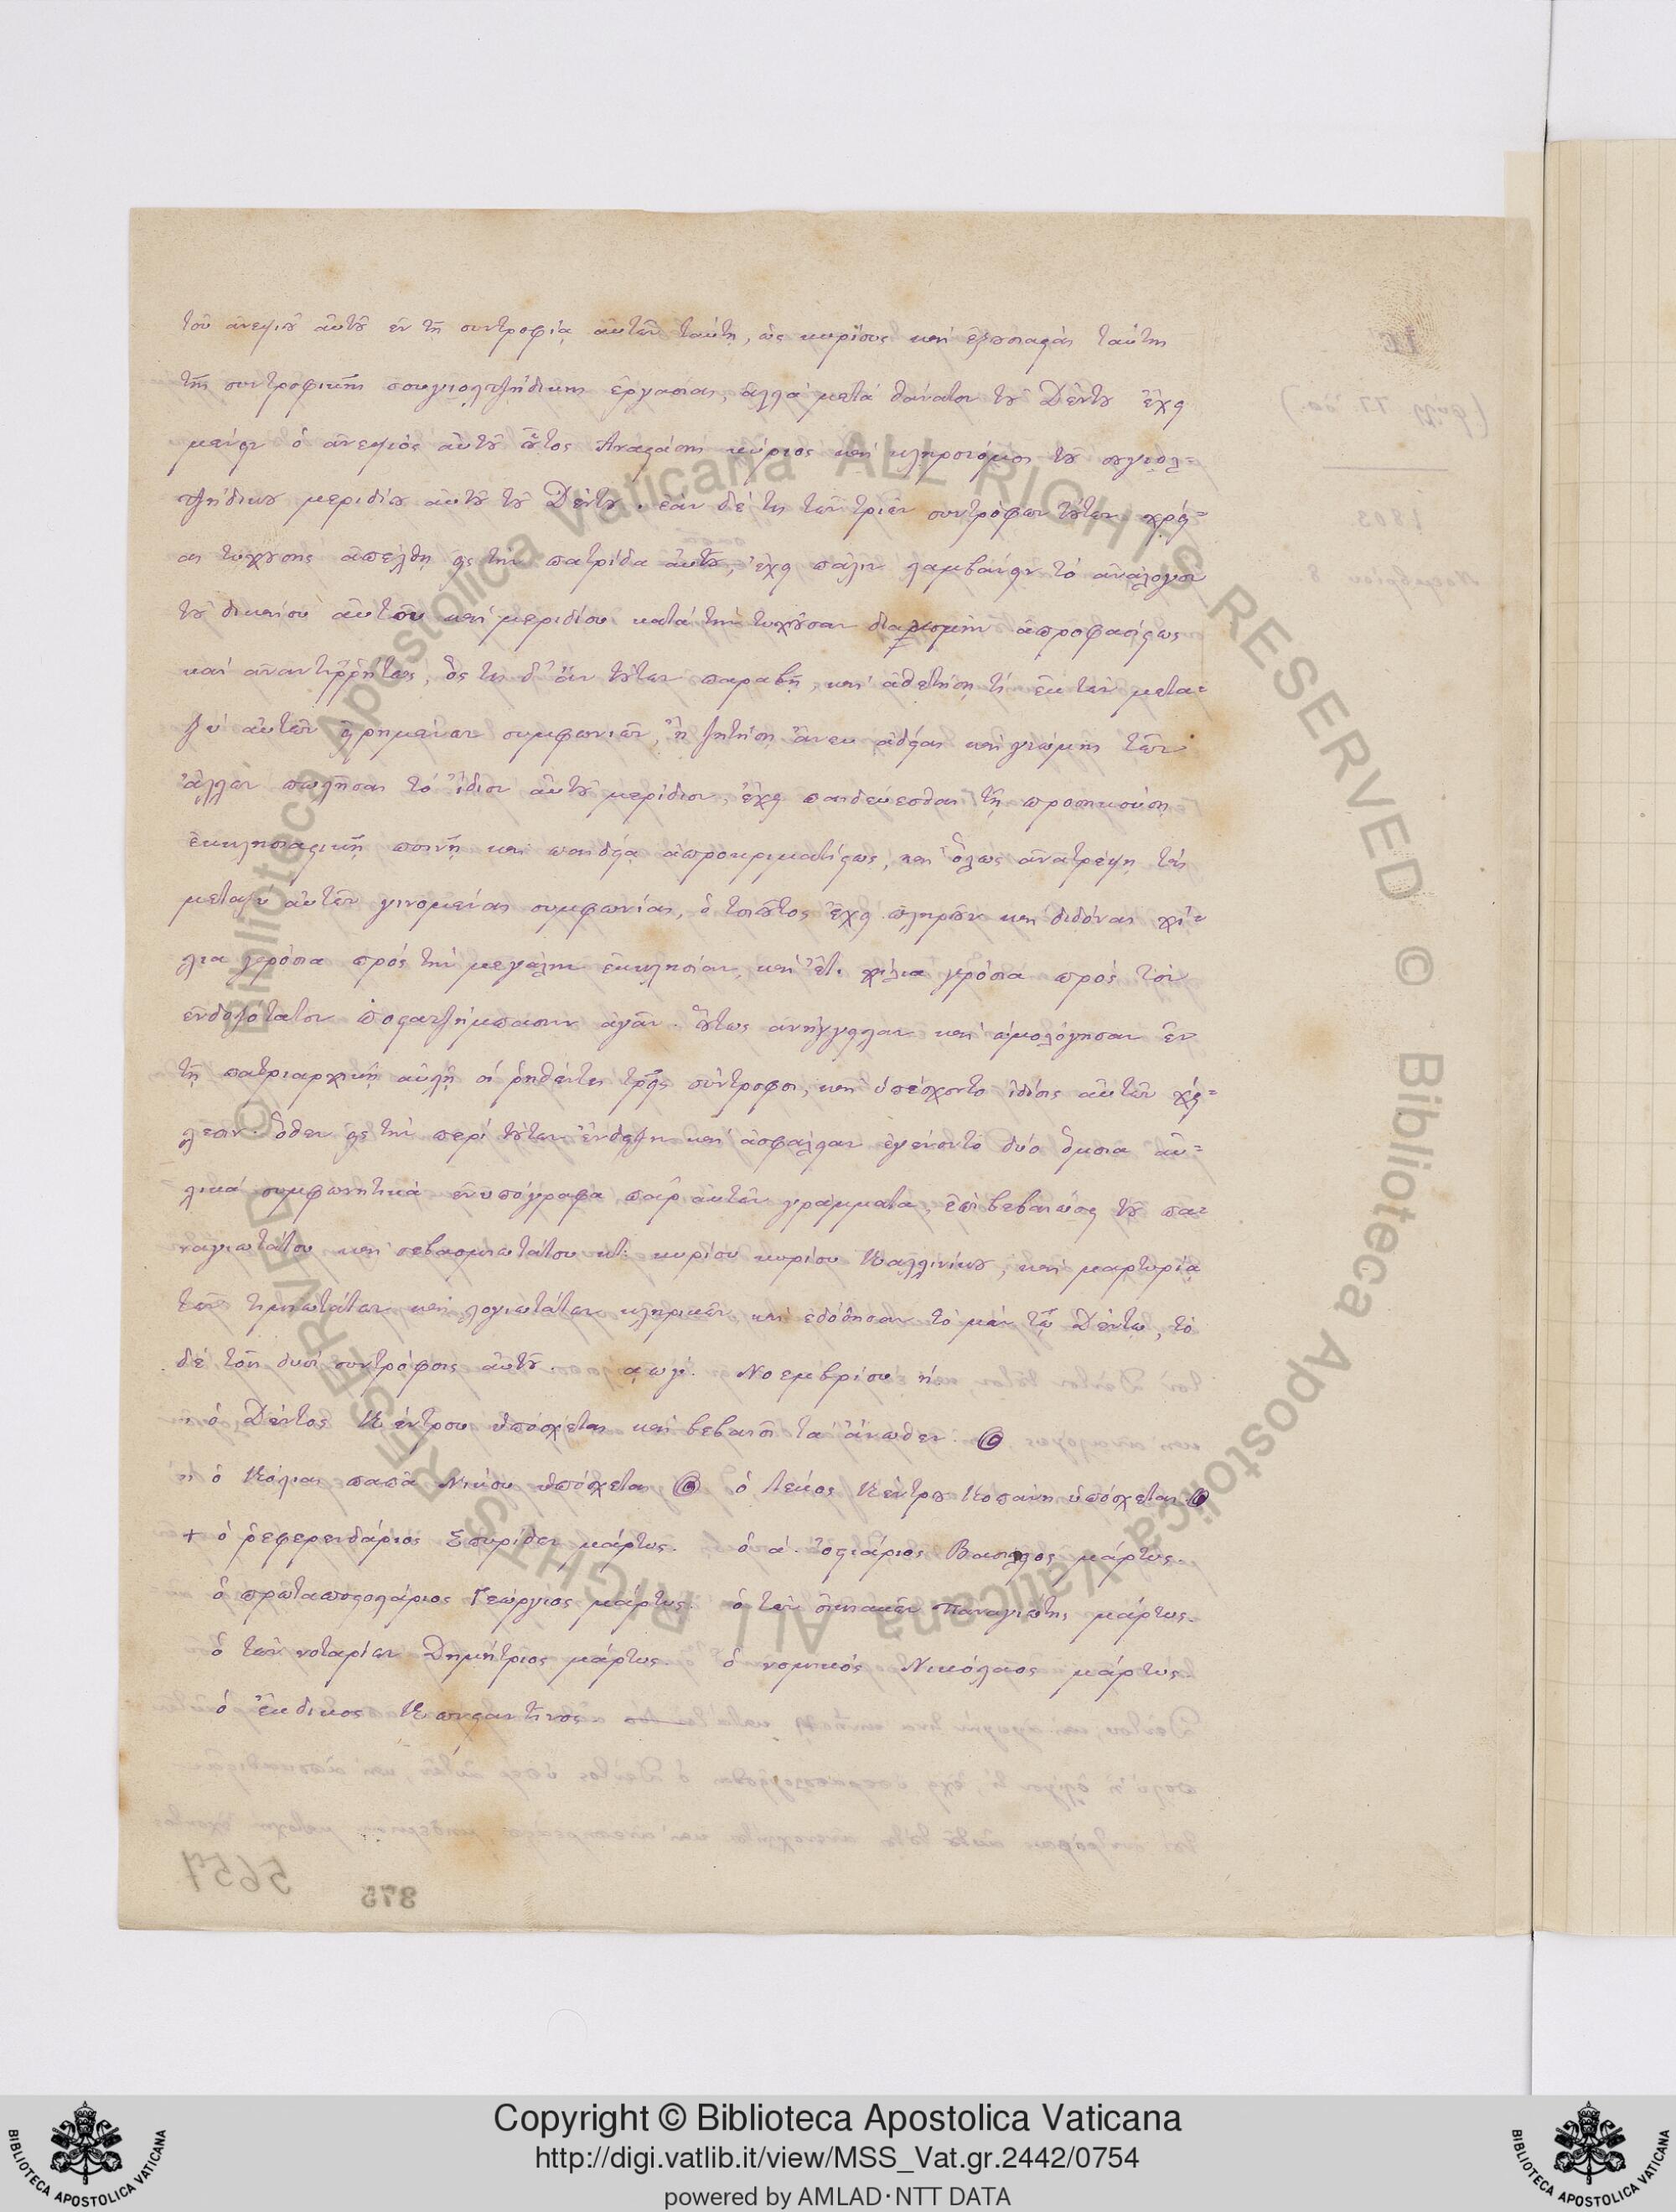 τοῦ ἀνεψιοῦ αὐτοῦ ἐν τῇ συντροφίᾳ αὐτῶν ταύτῃ, ὡς κυρίους καὶ ἐξουσιαστὰς ταύτης
τῆς συντροφικῆς σουγιολτζήδικης ἐργασίας, ἀλλὰ μετὰ θάνατον τοῦ Δέντου ἔχει
μένειν ὁ ἀνεψιὸς αὐτοῦ οὗτος Ἀναστάσης κύριος καὶ κληρονόμος τοῦ σουγιολ=
τζήδικου μεριδίου αὐτοῦ τοῦ Δέντου. ἐὰν δέ τις τῶν τριῶν συντρόφων τούτων χρεί=
ας τυχούσης ἀπέλθῃ εἰς τὴν πατρίδα αὐτοῦ, ἔχει πάλιν λαμβάνειν τὸ ἀνάλογον
τοῦ δικαίου αὐτοῦ καὶ μεριδίου κατὰ τὴν τυχοῦσαν διανομὴν ἀπροφασίστως
καὶ ἀναντιῤῥήτως, ὃς τις δ' ἂν τούτων παραβῇ, καὶ ἀθετήσῃ τί ἐκ τῶν μετα=
ξὺ αὐτῶν εἰρημένων συμφωνιῶν, ἢ ζητήσῃ ἄνευ ἀδείας καὶ γνώμης τῶν
ἄλλων πωλῆσαι τὸ ἴδιον αὐτοῦ μερίδιον, ἔχει παιδεύεσθαι τῇ προσηκούσῃ
ἐκκλησιαστικῇ ποινῇ καὶ παιδείᾳ ἀπροκριματίστως, καὶ ὅλως ἀνατρέψῃ τὰς
μεταξὺ αὐτῶν γινομένας συμφωνίας, ὁ τοιοῦτος ἔχει πληρῶν καὶ διδόναι χί=
λια γρόσια πρὸς τὴν μεγάλην ἐκκλησίαν, καὶ ἔτι χίλια γρόσια πρὸς τὸν
ἐνδοξότατον ποσταντζήμπασην ἀγᾶν. Οὕτως ἀνήγγειλαν καὶ ὡμολόγησαν ἐν
τῇ πατριαρχικῇ αὐλῇ οἱ ῥηθέντες τρεῖς σύντροφοι, καὶ ὑπέσχοντο ἰδίοις αὐτῶν χεί=
λεσιν. ὅθεν εἰς τὴν περὶ τούτων ἔνδειξιν καὶ ἀσφάλειαν ἐγένοντο δύο ὅμοια αὐ=
λικὰ συμφωνητικὰ ἐνυπόγραφα παρ' αὐτῶν γράμματα, ἐπιβεβαιώσει τοῦ πα=
ναγιωτάτου καὶ σεβασμιωτάτου κτ. κυρίου κυρίου Καλλινίκου, καὶ μαρτυρίᾳ
τῶν τιμιωτάτων καὶ λογιωτάτων κληρικῶν καὶ ἐδόθησαν τὸ μὲν τῷ Δέντῳ, τὸ
δὲ τοῖς δυσὶ συντρόφοις αὐτοῦ. αωγ'. Νοεμβρίου η'.
ὁ Δέντος Κέντρου ὑπόσχεται καὶ βεβαιοῖ τὰ ἄνωθεν.
ὁ Κόλιας παπᾶ Νικόου ὑπόσχεται ὁ Λέκος Κέντρου Κοπάνη ὑπόσχεται
+ ὁ ῥεφερενδάριος Σπυρίδων μάρτυς. ὁ α. ὀστιάριος Βασίλειος μάρτυς.
ὁ πρωταποστολάριος Γεώργιος μάρτυς. ὁ τῶν οἰκιακῶν Παναγιώτης μάρτυς.
ὁ τῶν νοταρίων Δημήτριος μάρτυς. ὁ νομικὸς Νικόλαος μάρτυς.
ὁ ἔκδικος Κωνσταντῖνος
Copyright © Biblioteca Apostolica Vaticana
http://digi.vatlib.it/view/MSS_Vat.gr.2442/0754
powered by AMLAD·NTT DATA